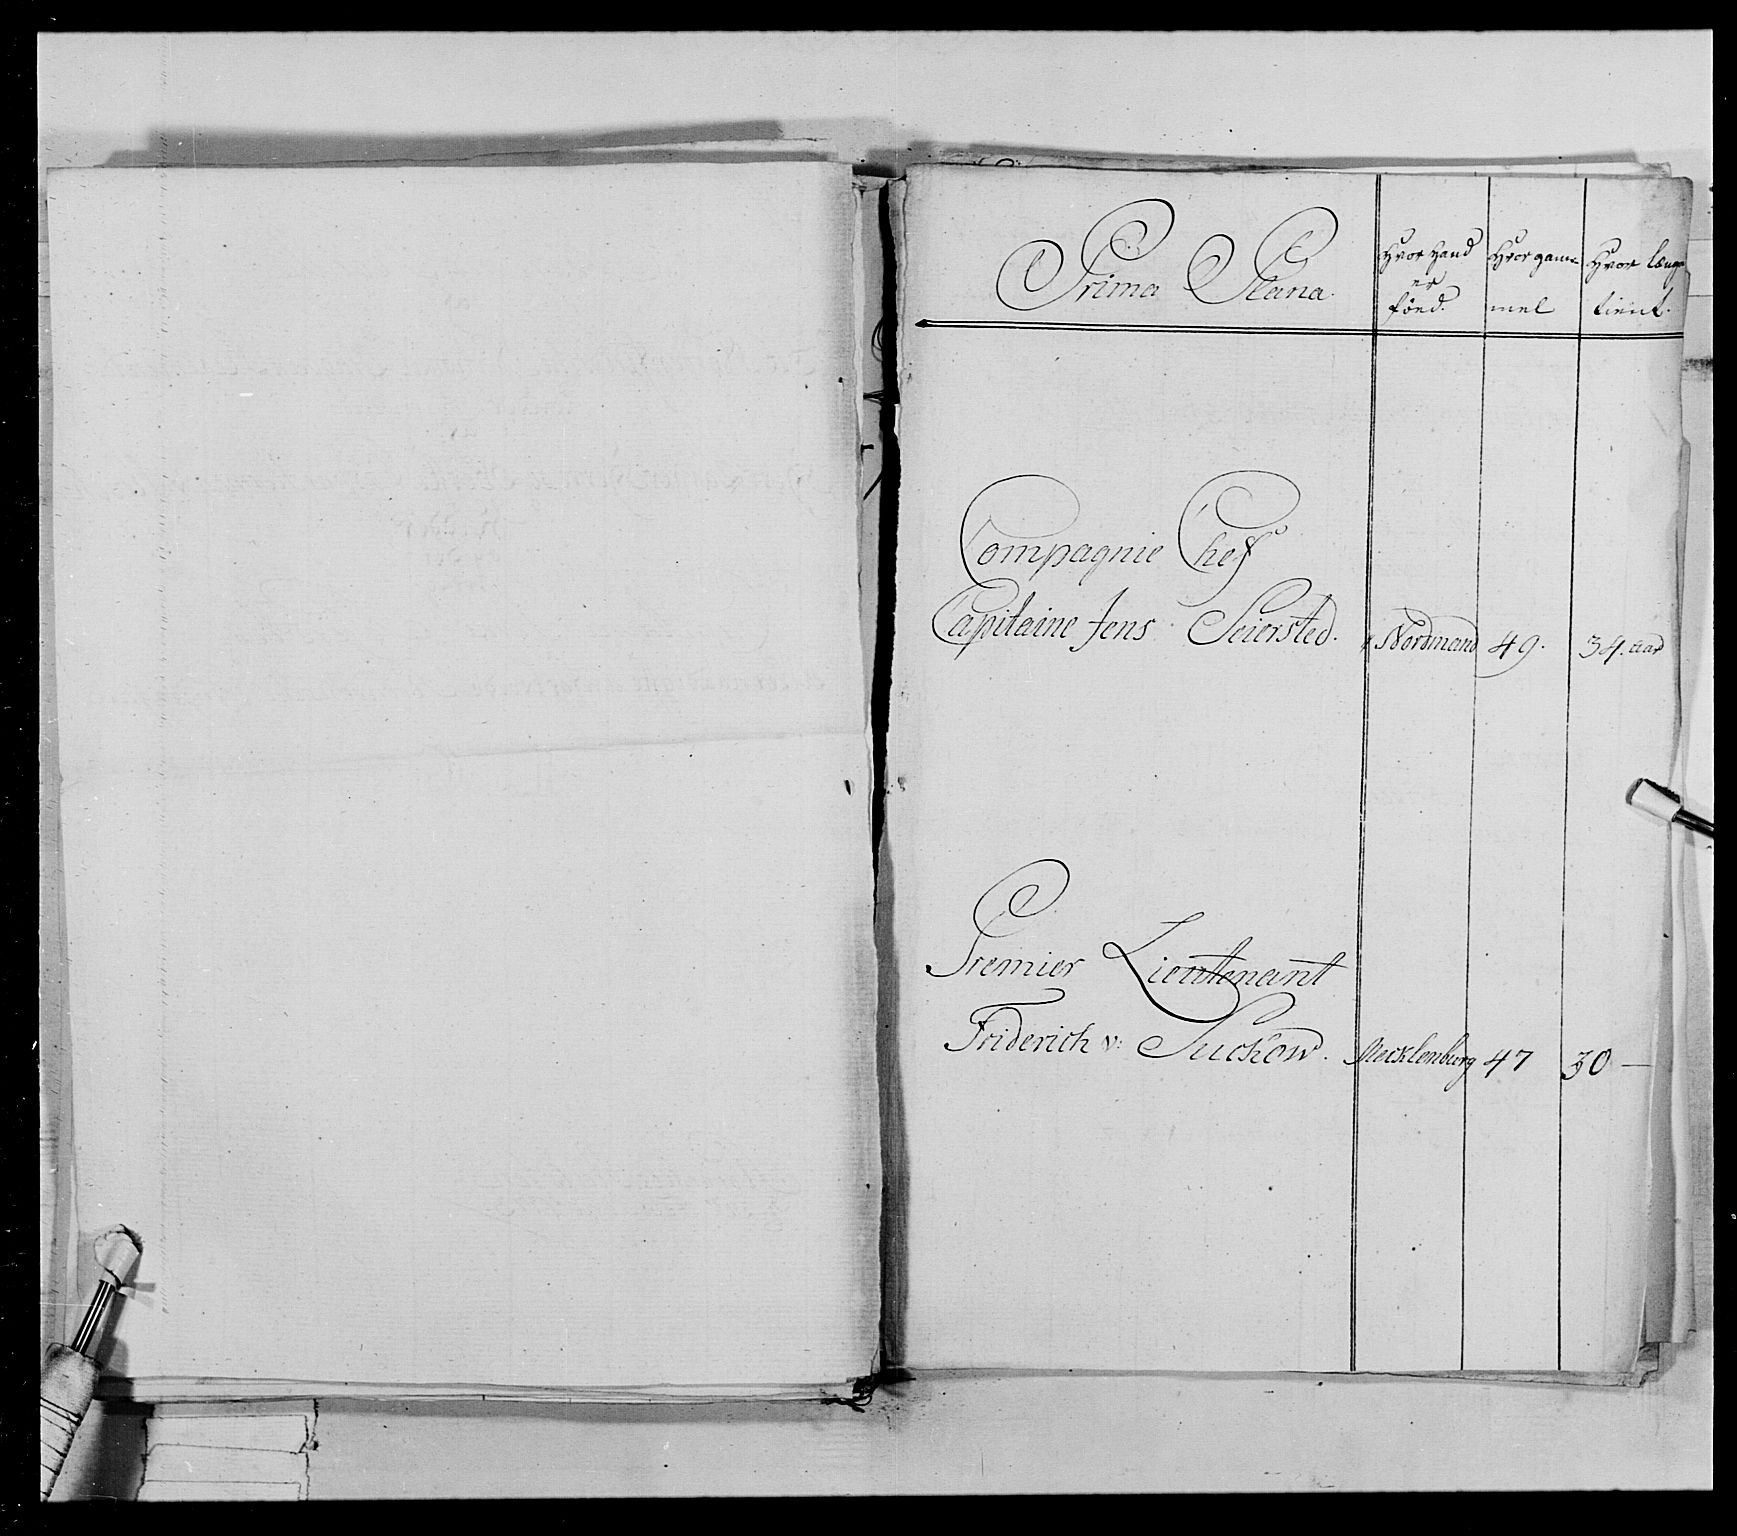 Prima Plana.
Hvor hand er föed.
Hvor gam̄mel
Hvor længe tient.
Compagnie Chef
Capitaine Jens Seiersted. Nordmand 49. 34. aar
Premier Lieutenant
Friderich v: Suckow. Mecklenburg 47 30 —